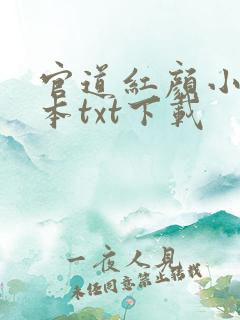 官道红颜小
本txt下载
一夜人見
未经同意禁止转载